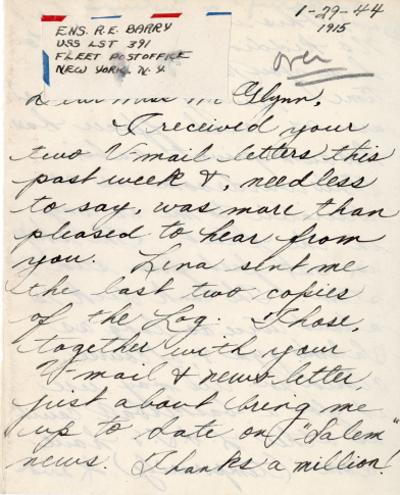 ENS. R.E. BARRY
USS LST 391
FLEET POSTOFFICE
NEW YORK, N.Y.
1-29-44
1915
over
Dear Miss McGlynn,
I received your
two V-mail letters this
past week &, needless
to say, was more than
pleased to hear from
you. Lena sent me
the last two copies
of the Log. Those,
together with your
V-mail & news letter,
just about bring me
up to date on "Salem"
news. Thanks a million!